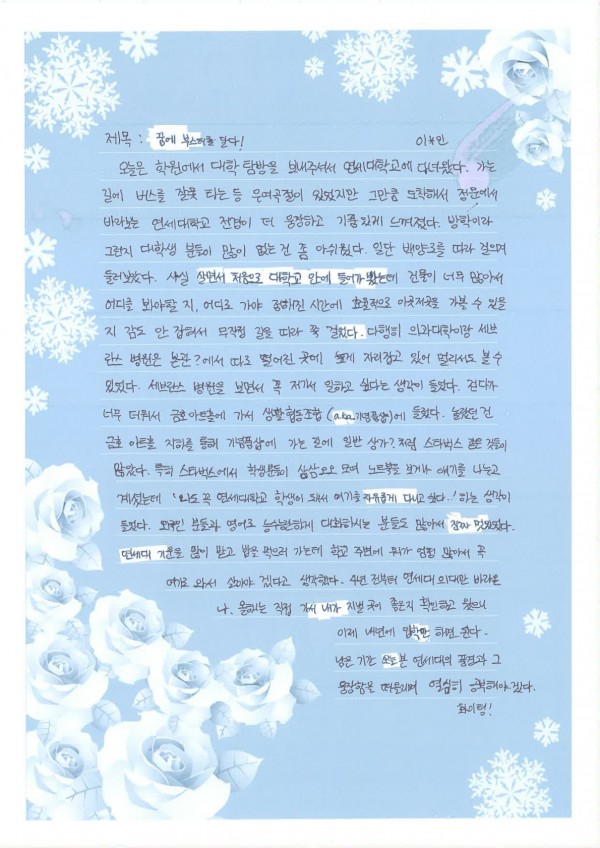 제목 : 꿈에 부스터를 달다! 이*민
오늘은 학원에서 대학 탐방을 보내주셔서 연세대학교에 다녀왔다. 가는
길에 버스를 잘못 타는 등 우여곡절이 있었지만 그만큼 도착해서 정문에서
바라보는 연세대학교 전경이 더 웅장하고 기품있게 느껴졌다. 방학이라
그런지 대학생 분들이 많이 없는 건 좀 아쉬웠다. 일단 백양로를 따라 걸으며
둘러보았다. 사실 살면서 처음으로 대학교 안에 들어가 봤는데 건물이 너무 많아서
어디를 봐야할 지, 어디로 가야 정해진 시간에 효율적으로 이곳저곳을 가볼 수 있을
지 감도 안 잡혀서 무작정 길을 따라 쭉 걸었다. 다행히 의과대학이랑 세브
란스 병원은 본관?에서 따로 떨어진 곳에 높게 자리잡고 있어 멀리서도 볼 수
있었다. 세브란스 병원을 보면서 꼭 저기서 일하고 싶다는 생각이 들었다. 걷다가
너무 더워서 금호아트홀에 가서 생활협동조합(aka기념품샵)에 들렀다. 놀랐던 건
금호 아트홀 지하를 통해 기념품샵에 가는 길에 일반 상가?처럼 스타벅스 같은 것들이
많았다. 특히 스타벅스에서 학생분들이 삼삼오오 모여 노트북을 보거나 얘기를 나누고
계셨는데 '나도 꼭 연세대학교 학생이 돼서 여기를 자유롭게 다니고 싶다..' 하는 생각이
들었다. 외국인 분들과 영어로 능수란하게 대화하시는 분들도 많아서 진짜 멋있었다.
연세대 기운을 많이 받고 밥을 먹으러 가는데 학교 주변에 뭐가 엄청 많아서 꼭
여기로 와서 살아야 겠다고 생각했다. 수년 전부터 연세대 의대만 바라본
나. 올해는 직접 가서 내가 지낼 곳이 좋은지 확인하고 왔으니
이제 내년에 입학만 하면 된다.
남은 기간 오늘 본 연세대의 풍경과 그
웅장함을 떠올리며 열심히 공부해야겠다.
화이팅!